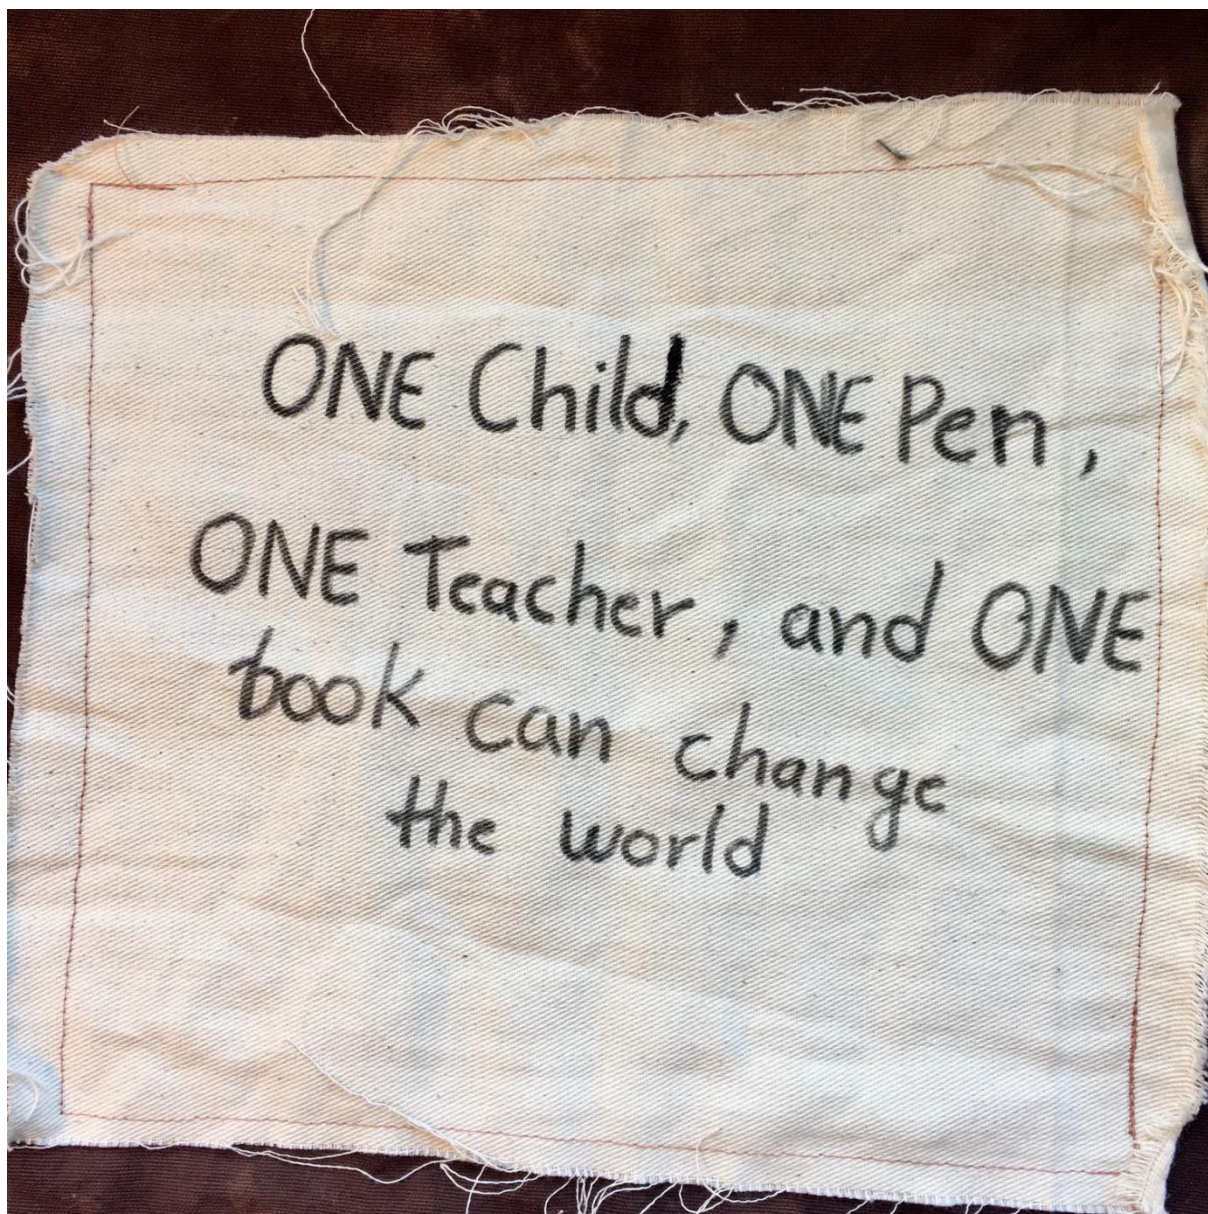 ONE Child, ONE Pen,
ONE Teacher, and ONE
book can change
the world